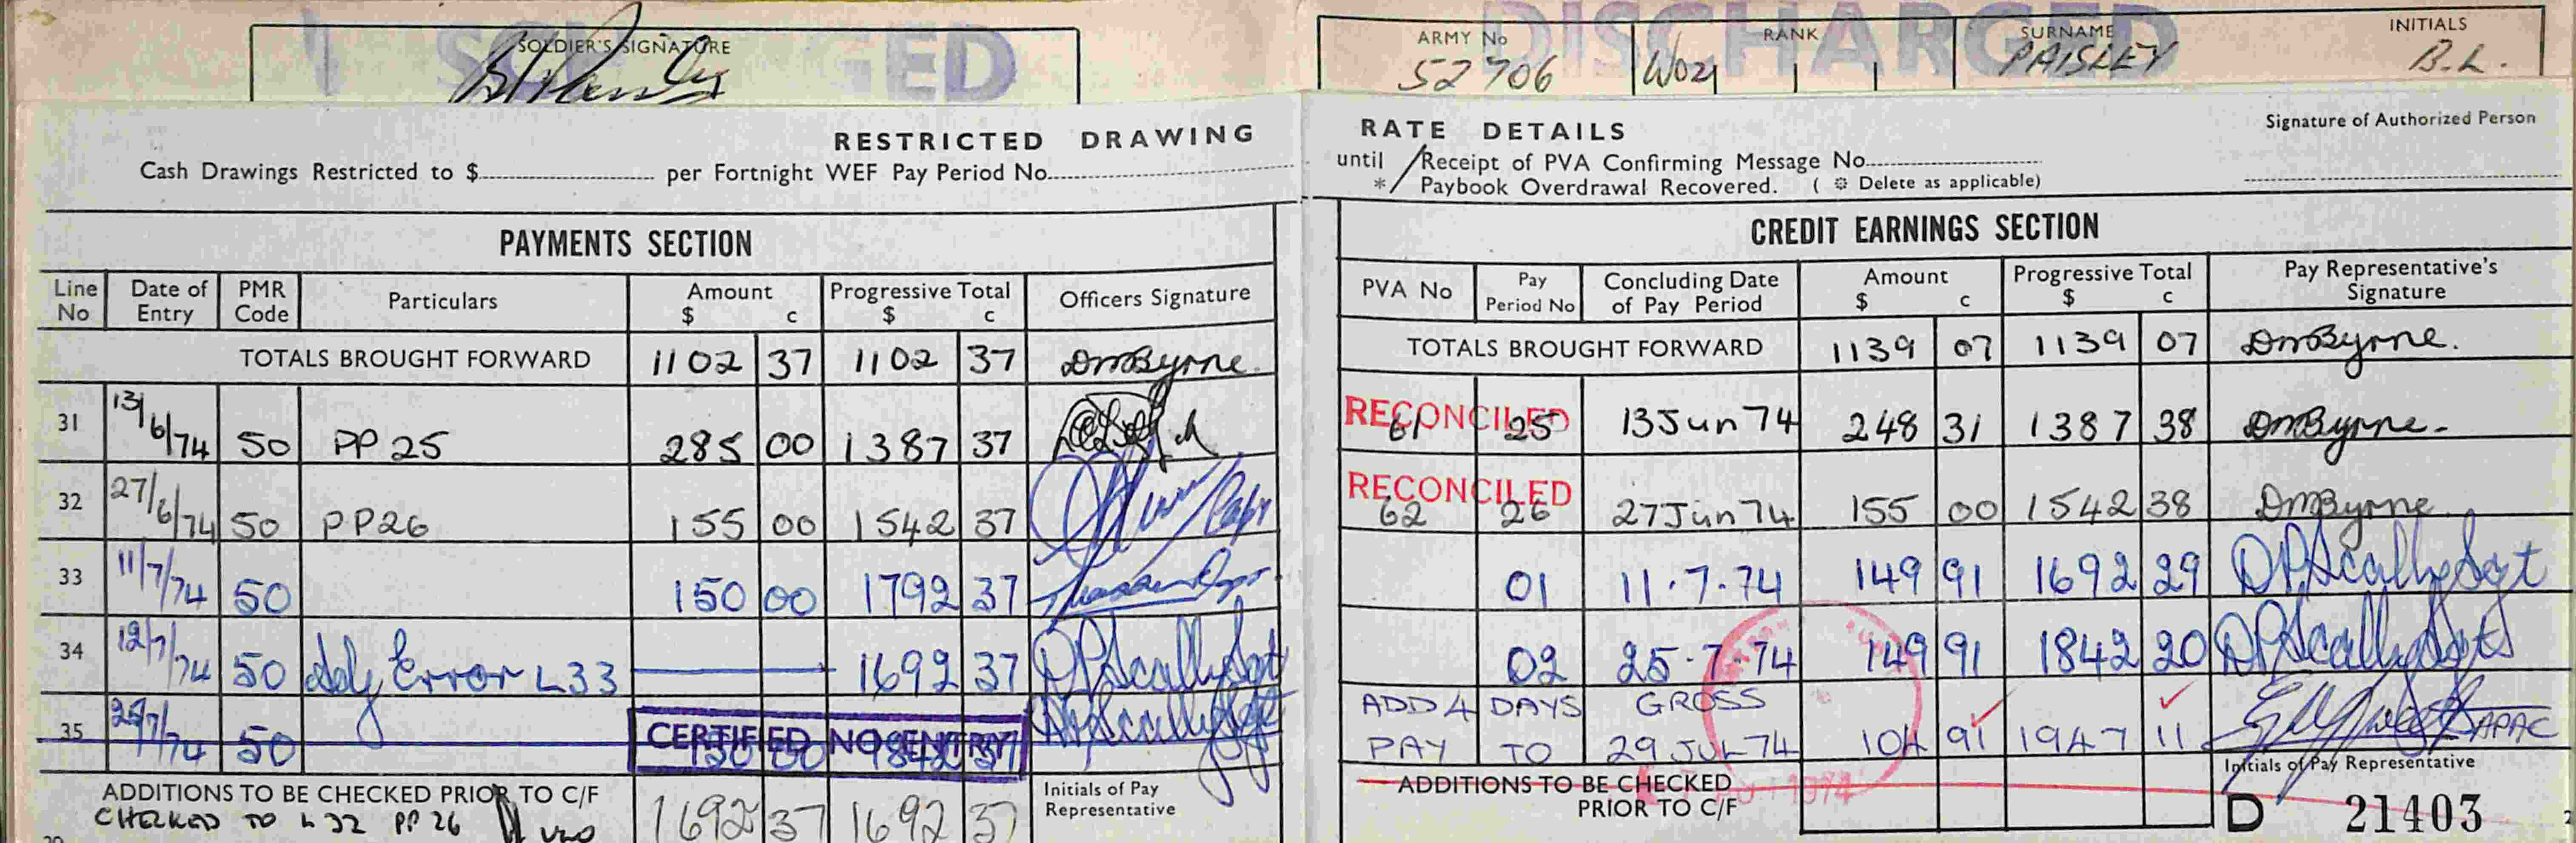 DISCHARGED
SOLDIER'S SIGNATURE
ARMY No RANK SURNAME INITIALS
52706 WO2 PAISLEY B.L.
RESTRICTED DRAWING RATE DETAILS
Signature of Authorized Person
Cash Drawings Restricted to $ per Fortnight WEF Pay Period No. until / Receipt of PVA Confirming Message No.
* / Paybook Overdrawal Recovered. ( * Delete as applicable)
PAYMENTS SECTION
Line No Date of Entry PMR Code Particulars Amount $ c Progressive Total $ c Officers Signature
TOTALS BROUGHT FORWARD 1102 37 1102 37 DMByrne.
31 13/6/74 50 PP 25 285 00 1387 37
32 27/6/74 50 PP26 155 00 1542 37
33 11/7/74 50 150 00 1792 37
34 12/7/74 50 Adj Error L33 1692 37 DPScally Sgt
35 25/7/74 50 150 00 1842 37 DPScally Sgt
CERTIFIED NO ENTRY
ADDITIONS TO BE CHECKED PRIOR TO C/F 1692 37 1692 37 Initials of Pay Representative
CHECKED TO L 32 PP 26
CREDIT EARNINGS SECTION
PVA No Pay Period No Concluding Date of Pay Period Amount $ c Progressive Total $ c Pay Representative's Signature
TOTALS BROUGHT FORWARD 1139 07 1139 07 DMByrne.
RECONCILED
61 25 13 Jun 74 248 31 1387 38 DMByrne.
RECONCILED
62 26 27 Jun 74 155 00 1542 38 DMByrne
01 11.7.74 149 91 1692 29 DPScally Sgt
02 25.7.74 149 91 1842 20 DPScally Sgt
ADD 4 DAYS GROSS
PAY TO 29 JUL 74 104 91 1947 11 APAC
ADDITIONS TO BE CHECKED
PRIOR TO C/F
1974
Initials of Pay Representative
D 21403